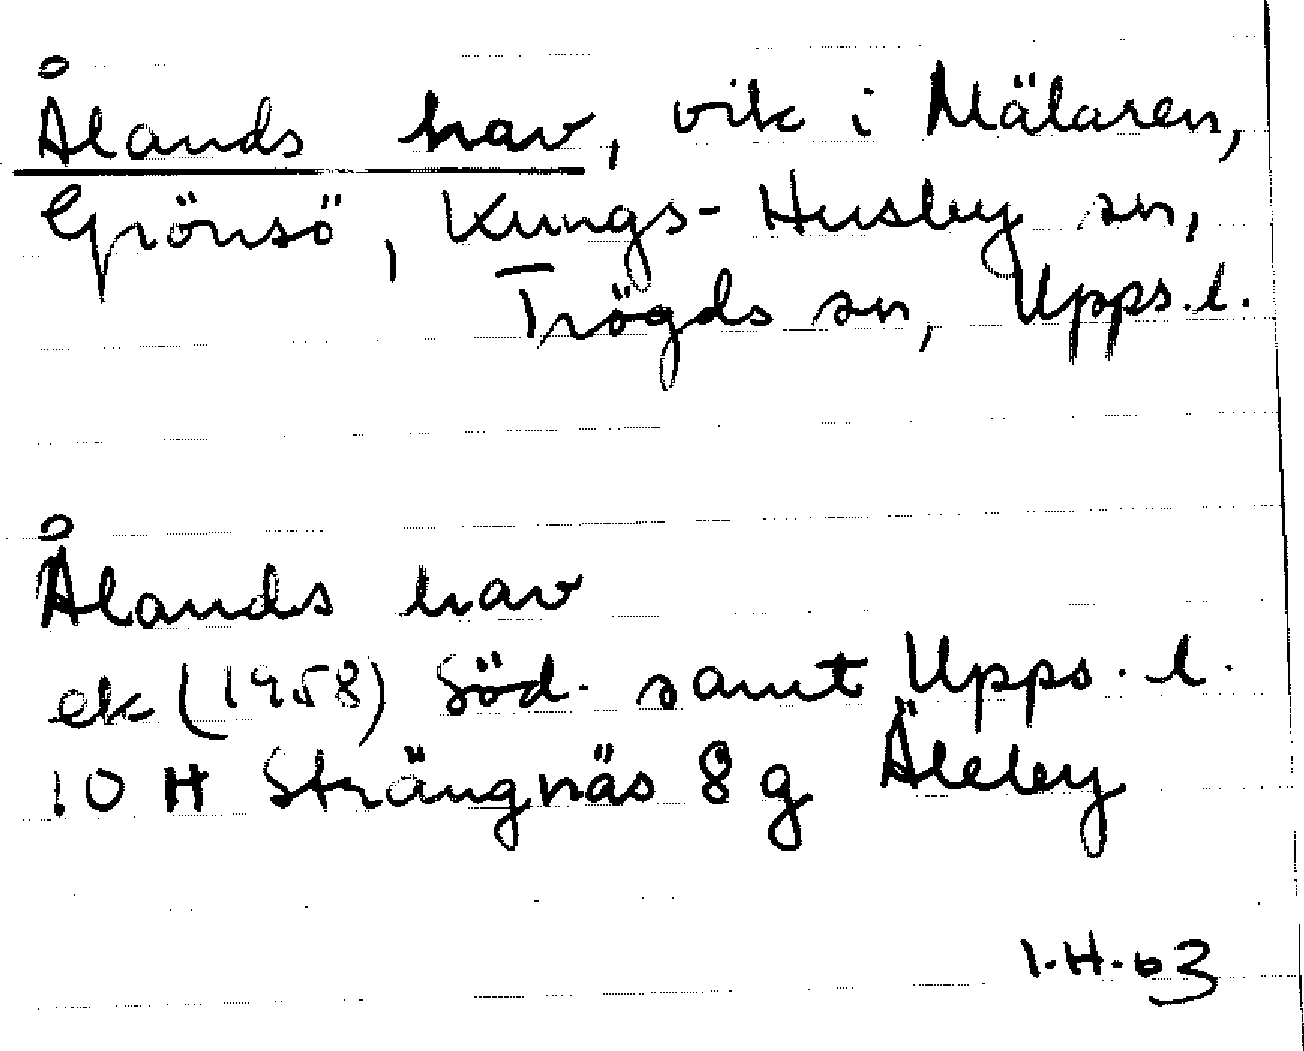 Ålands hav, vik i Mälaren,
Grönsö, Kungs-Husby sn,
Trögds sn, Upps. l.
Ålands hav
ek (1958) Söd. samt Upps. l.
10 H Strängnäs 8 g Äleby
I.H.63